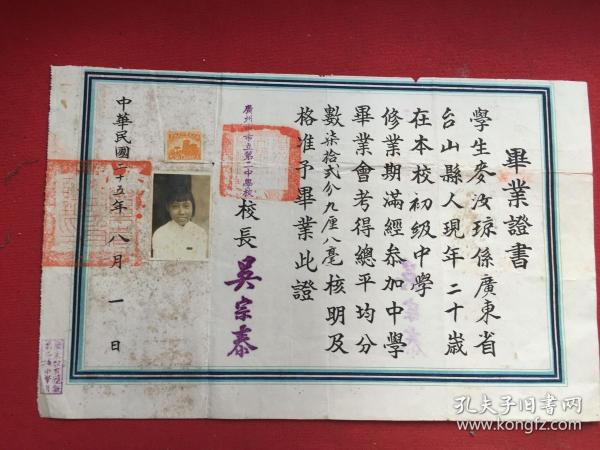 畢業證書
學生麥汝琼係廣東省
台山縣人現年二十歲
在本校初級中學
修業期滿經參加中學
畢業會考得總平均分
數柒拾弍分九厘八毫核明及
格准予畢業此證
廣州市市立第二中學校
校長 吳宗泰
中華民國二十五年八月一日
孔夫子旧书网
www.kongfz.com